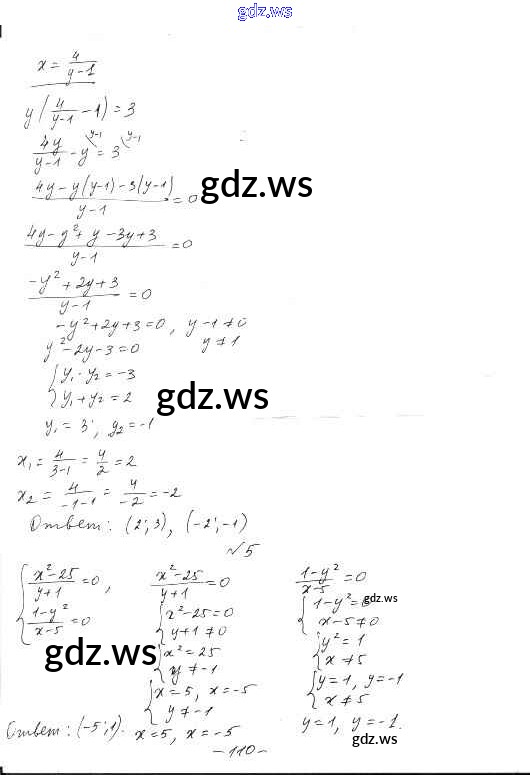 gdz.ws
x = 4/(y-1)
y(4/(y-1) - 1) = 3
4y/(y-1) - y^(y-1) = 3^(y-1)
(4y - y(y-1) - 3(y-1))/(y-1) = 0
gdz.ws
(4y - y² + y - 3y + 3)/(y-1) = 0
(-y² + 2y + 3)/(y-1) = 0
-y² + 2y + 3 = 0, y - 1 ≠ 0
y² - 2y - 3 = 0 y ≠ 1
{ y₁ · y₂ = -3
y₁ + y₂ = 2
gdz.ws
y₁ = 3; y₂ = -1
x₁ = 4/(3-1) = 4/2 = 2
x₂ = 4/(-1-1) = 4/(-2) = -2
Ответ: (2; 3), (-2; -1)
№5
{ (x²-25)/(y+1) = 0,
(1-y²)/(x-5) = 0
gdz.ws
(x²-25)/(y+1) = 0
{ x² - 25 = 0
y + 1 ≠ 0
{ x² = 25
y ≠ -1
{ x = 5, x = -5
y ≠ -1
x = 5, x = -5
(1-y²)/(x-5) = 0
{ 1 - y² = 0
x - 5 ≠ 0
gdz.ws
{ y² = 1
x ≠ 5
{ y = 1, y = -1
x ≠ 5
y = 1, y = -1.
gdz.ws
Ответ: (-5; 1).
- 110 -